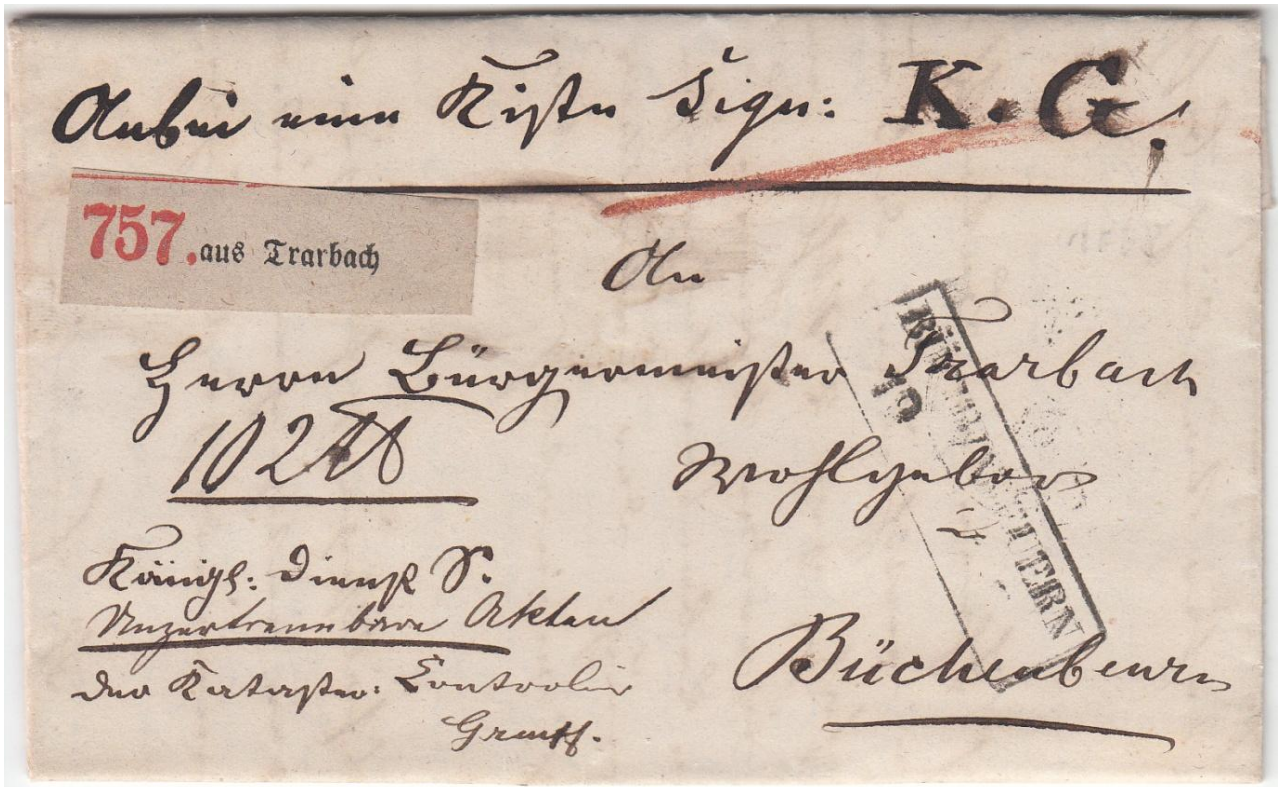 Anbei eine Kiste Sign: K. G.
757. aus Trarbach
An
Herrn Bürgermeister Trarbach
10 2
Wohlgebor
Königl: Dienst S.
Unzertrennbare Akten
der Kataster: Controleur
Büchenbeuren
BÜCHENBEUERN